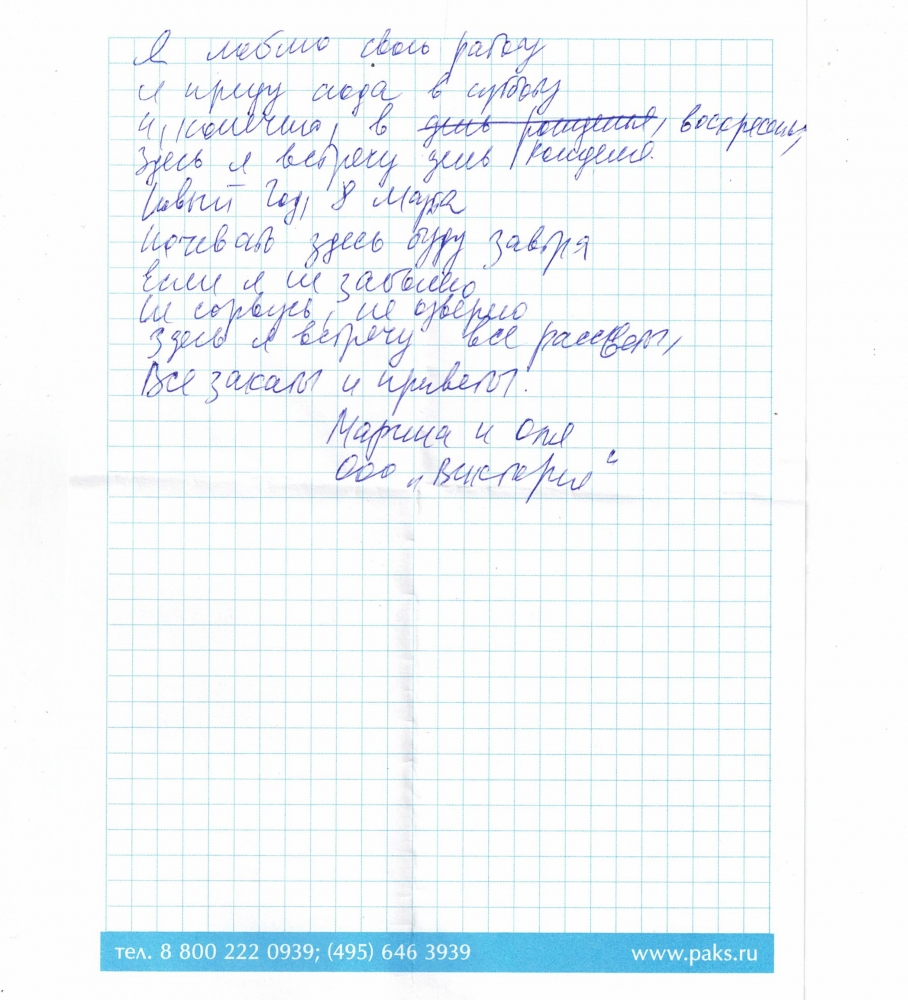 Я люблю свою работу
Я приду сюда в субботу
И, конечно, в день рождения, воскресенье,
Здесь я встречу день рождения.
Новый Год, 8 Марта
Ночевать здесь буду завтра
Если я не заболею
Не сорвусь, не озверею
Здесь я встречу все рассветы,
Все закаты и приветы.
Марина и Оля
ООО "Виктория"
тел. 8 800 222 0939; (495) 646 3939 www.paks.ru